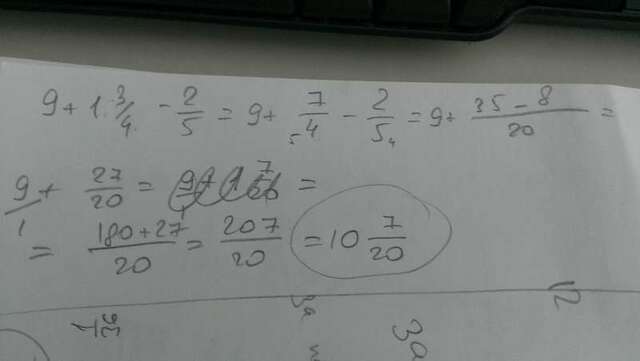 9 + 1 3/4 - 2/5 = 9 + 7/4 - 2/5 = 9 + 35 - 8/20 =
9/1 + 27/20 = =
= 180 + 27/20 = 207/20 = 10 7/20
3a
3a